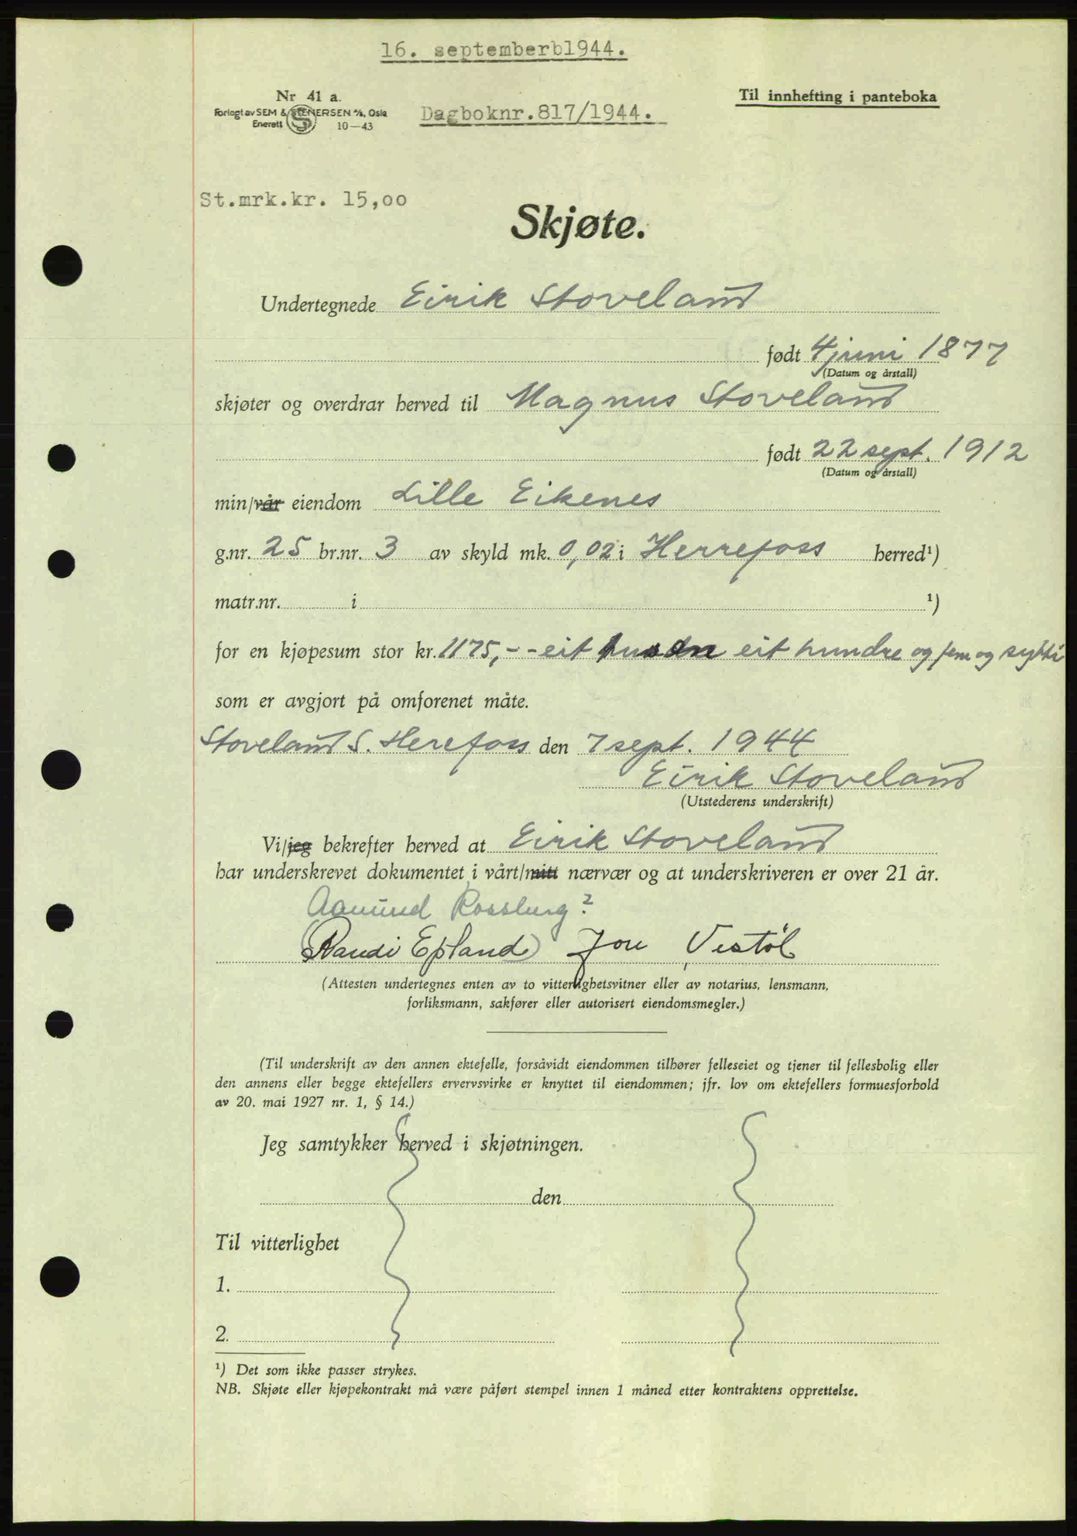 16. septemberb1944.
Nr 41 a.
Forlagt av SEM & STENERSEN A/S, Oslo
Enerett 10—43
Til innhefting i panteboka
Dagboknr.817/1944.
St.mrk.kr. 15,00
Skjøte.
Undertegnede Eirik Stoveland
født 4 juni 1877
(Datum og årstall)
skjøter og overdrar herved til Magnus Stoveland
født 22 sept. 1912
(Datum og årstall)
min/vår eiendom Lille Eikenes
g.nr. 25 br.nr. 3 av skyld mk. 0,02 i Herrefoss herred¹)
matr.nr. i ¹)
for en kjøpesum stor kr. 1175,- - eit eit hundre og fem og sytti
som er avgjort på omforenet måte.
Stoveland S. Herefoss den 7 sept. 1944
Eirik Stoveland
(Utstederens underskrift)
Vi/jeg bekrefter herved at Eirik Stoveland
har underskrevet dokumentet i vårt/mitt nærvær og at underskriveren er over 21 år.
Aamund Rossburg?
(Randi Epland) Jon Vestøl
(Attesten undertegnes enten av to vitterlighetsvitner eller av notarius, lensmann,
forliksmann, sakfører eller autorisert eiendomsmegler.)
(Til underskrift av den annen ektefelle, forsåvidt eiendommen tilhører felleseiet og tjener til fellesbolig eller
den annens eller begge ektefellers ervervsvirke er knyttet til eiendommen; jfr. lov om ektefellers formuesforhold
av 20. mai 1927 nr. 1, § 14.)
Jeg samtykker herved i skjøtningen.
den
Til vitterlighet
1.
2.
¹) Det som ikke passer strykes.
NB. Skjøte eller kjøpekontrakt må være påført stempel innen 1 måned etter kontraktens opprettelse.